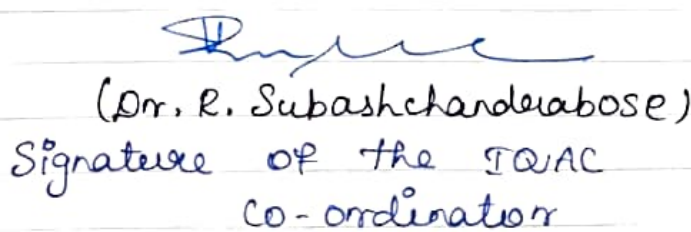 (Dr. R. Subashchanderabose)
Signature of the IQAC
co-ordinator